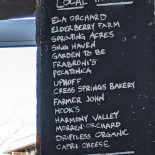 LOCAL
ELA ORCHARD
ELDERBERRY FARM
SPROUTING ACRES
SNUG HAVEN
GARDEN TO BE
FRABRONI'S
PECATONICA
UPHOFF
CRESS SPRINGS BAKERY
FARMER JOHN
HOOK'S
HARMONY VALLEY
MORREN ORCHARD
DRIFTLESS ORGANIC
CAPRI CHEESE